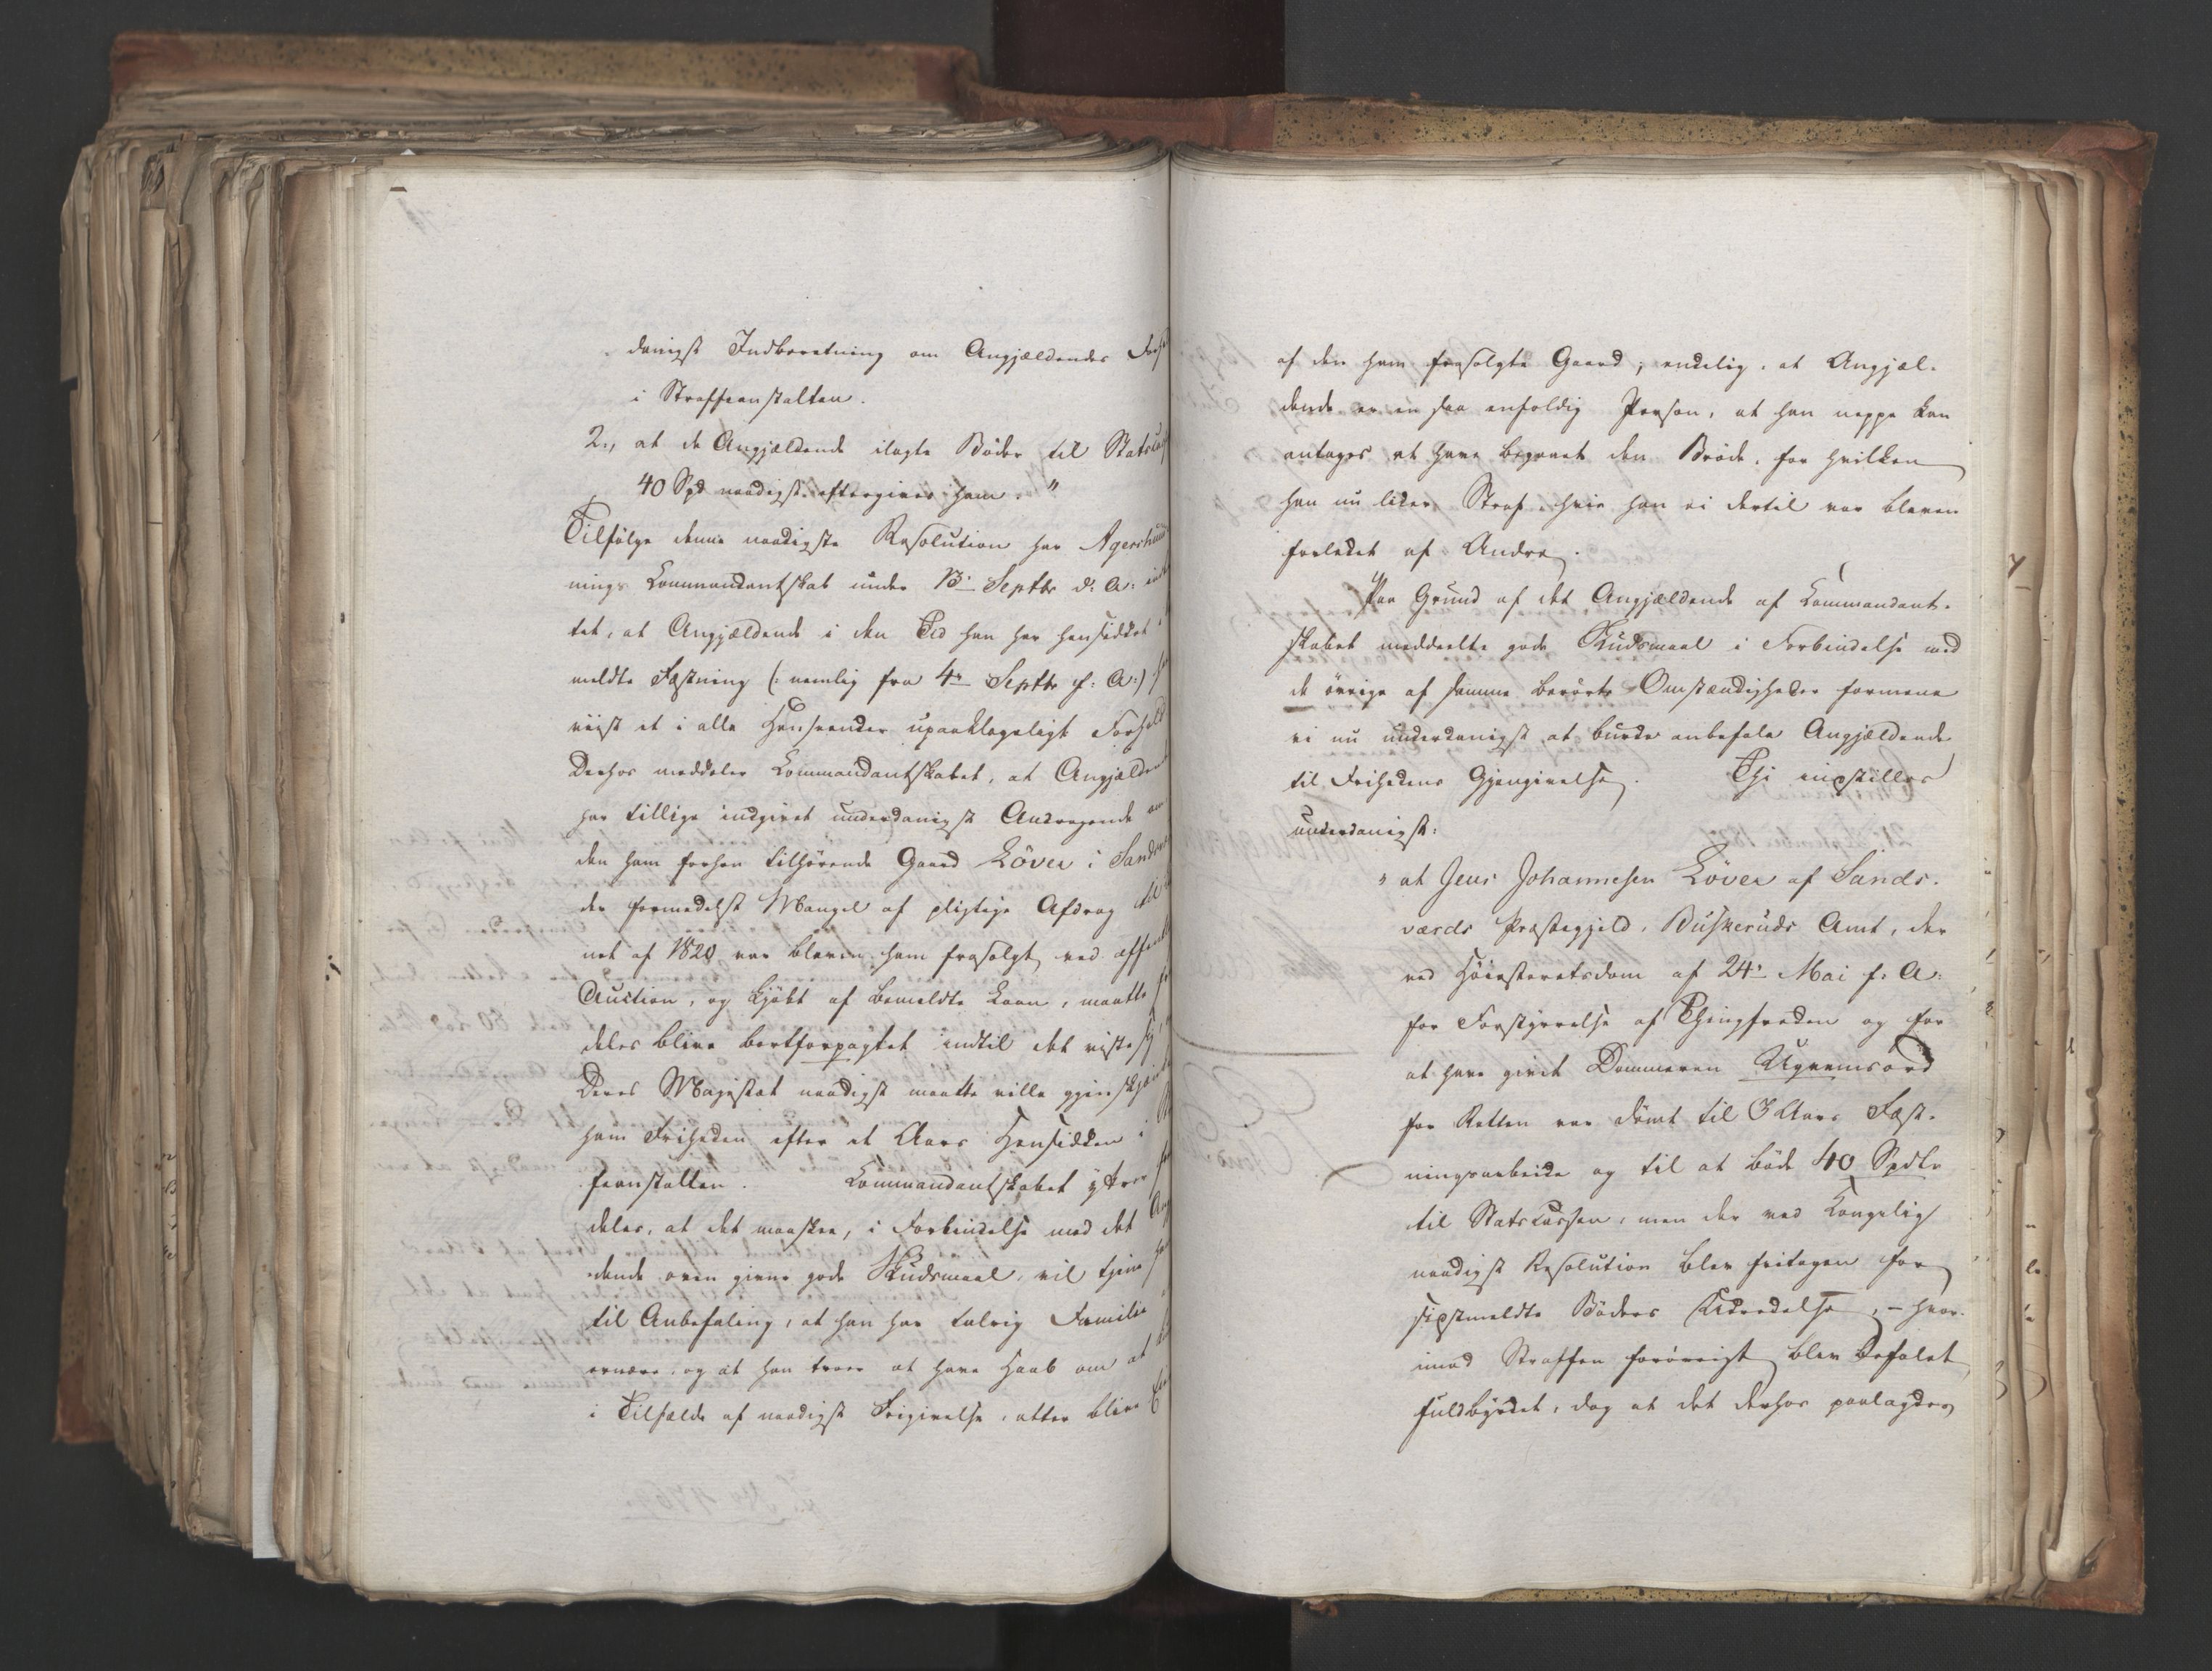 danigst Indberetning om Angjældendes
i Straffeanstalten.
2., at de Angjældende ilagte Bøder til Statscas
40 Spd naadigst eftergives ham."
Tilfølge denne naadigste Resolution har Agershuus
nings Commandantskab under 13de Septbr d: A:
tet, at Angjældende i den Tid han har hensiddet
meldte Fæstning (: nemlig fra 4de Septbr f: A:)
viist et i alle Henseender upaaklageligt Forhold
Derhos meddeler Commandantskabet, at Angjælden
har tillige indgivet underdanigst Andragende om
den ham forhen tilhørende Gaard Løver i Sandsvæ
der formedelst Mangel af pligtige Afdrag til
net af 1820 var bleven ham frasolgt ved offent
Auction, og kjøbt af bemeldte Laan, maatte
deles blive bortforpagtet indtil det viste sig,
Deres Majestæt naadigst maatte ville gjenskjæn
ham Friheden efter et Aars Hensidden i
feanstalten. Commandantskabet yttrer
deles, at det maaskee, i Forbindelse med det Ang
dende oven givne gode Skudsmaal, vil tjene
til Anbefaling, at han har talrig Familie
ernære, og at han troer at have Haab om at
i Tilfælde af naadigst Frigivelse, atter blive
af den ham frasolgte Gaard; endelig, at Angjæl-
dende er en saa enfoldig Person, at han neppe kan
antages at have begaaet den Brøde, for hvilken
han nu lider Straf, hvis han ei dertil var bleven
forledet af Andre.
Paa Grund af det Angjældende af Commandant-
skabet meddeelte gode Skudsmaal i Forbindelse med
de øvrige af samme berørte Omstændigheder formene
vi nu underdanigst at burde anbefale Angjældende
til Frihedens Gjengivelse. Thi indstilles
underdanigst:
" at Jens Johannesen Løver af Sands-
værds Præstegjeld, Buskeruds Amt, der
ved Høiesteretsdom af 24de Mai f: A:
for Forstyrrelse af Thingfreden og for
at have givet Dommeren Uqvemsord
for Retten var dømt til 3 Aars Fæst-
ningsarbeide og til at bøde 40 Spdlr
til Statscassen, men der ved Kongelig
naadigst Resolution blev fritagen for
sidstmeldte Bøders Udredelse, - hvor-
imod Straffen forøvrigt blev befalet
fuldbyrdet, dog at det derhos paalagdes